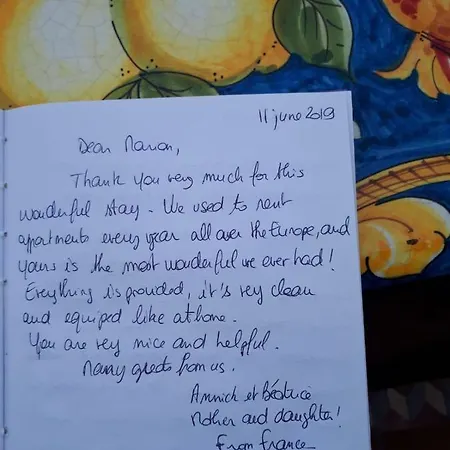 11 june 2019
Dear Marion,
Thank you very much for this
wonderful stay - We used to rent
appartments every year all over the Europe, and
yours is the most wonderful we ever had!
Everything is provided, it's very clean
and equiped like at home.
You are very nice and helpful.
Many greets from us.
Annick et Béatrice
Mother and daughter!
From France